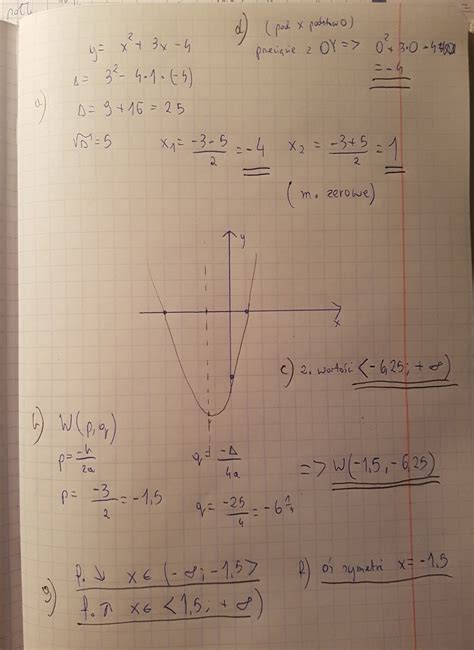 d) (pod x podstaw 0)
y = x² + 3x - 4
przecięcie z OY => 0² + 3·0 - 4
= -4
a)
Δ = 3² - 4·1·(-4)
Δ = 9 + 16 = 25
√Δ = 5 x₁ = (-3-5)/2 = -4 x₂ = (-3+5)/2 = 1
(m. zerowe)
y
x
c) z. wartości <-6,25; +∞)
b) W(p, q)
p = -b/2a q = -Δ/4a
=> W(-1,5, -6,25)
p = -3/2 = -1,5 q = -25/4 = -6 1/4
g) f. ↘ x ∈ (-∞; -1,5>
f. ↗ x ∈ <1,5; +∞)
f) oś symetrii x = -1,5